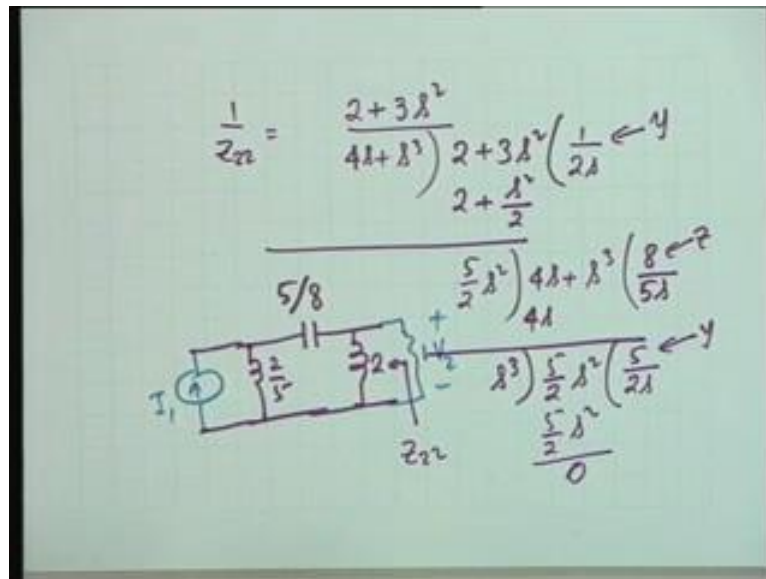 1/Z₂₂ = (2 + 3s²)/(4s + s³) ) 2 + 3s² ( 1/2s ← y
2 + s²/2
5/2 s² ) 4s + s³ ( 8/5s ← z
4s
s³ ) 5/2 s² ( 5/2s ← y
5/2 s²
0
5/8
I₁
2/5
2
+
V₂
-
Z₂₂